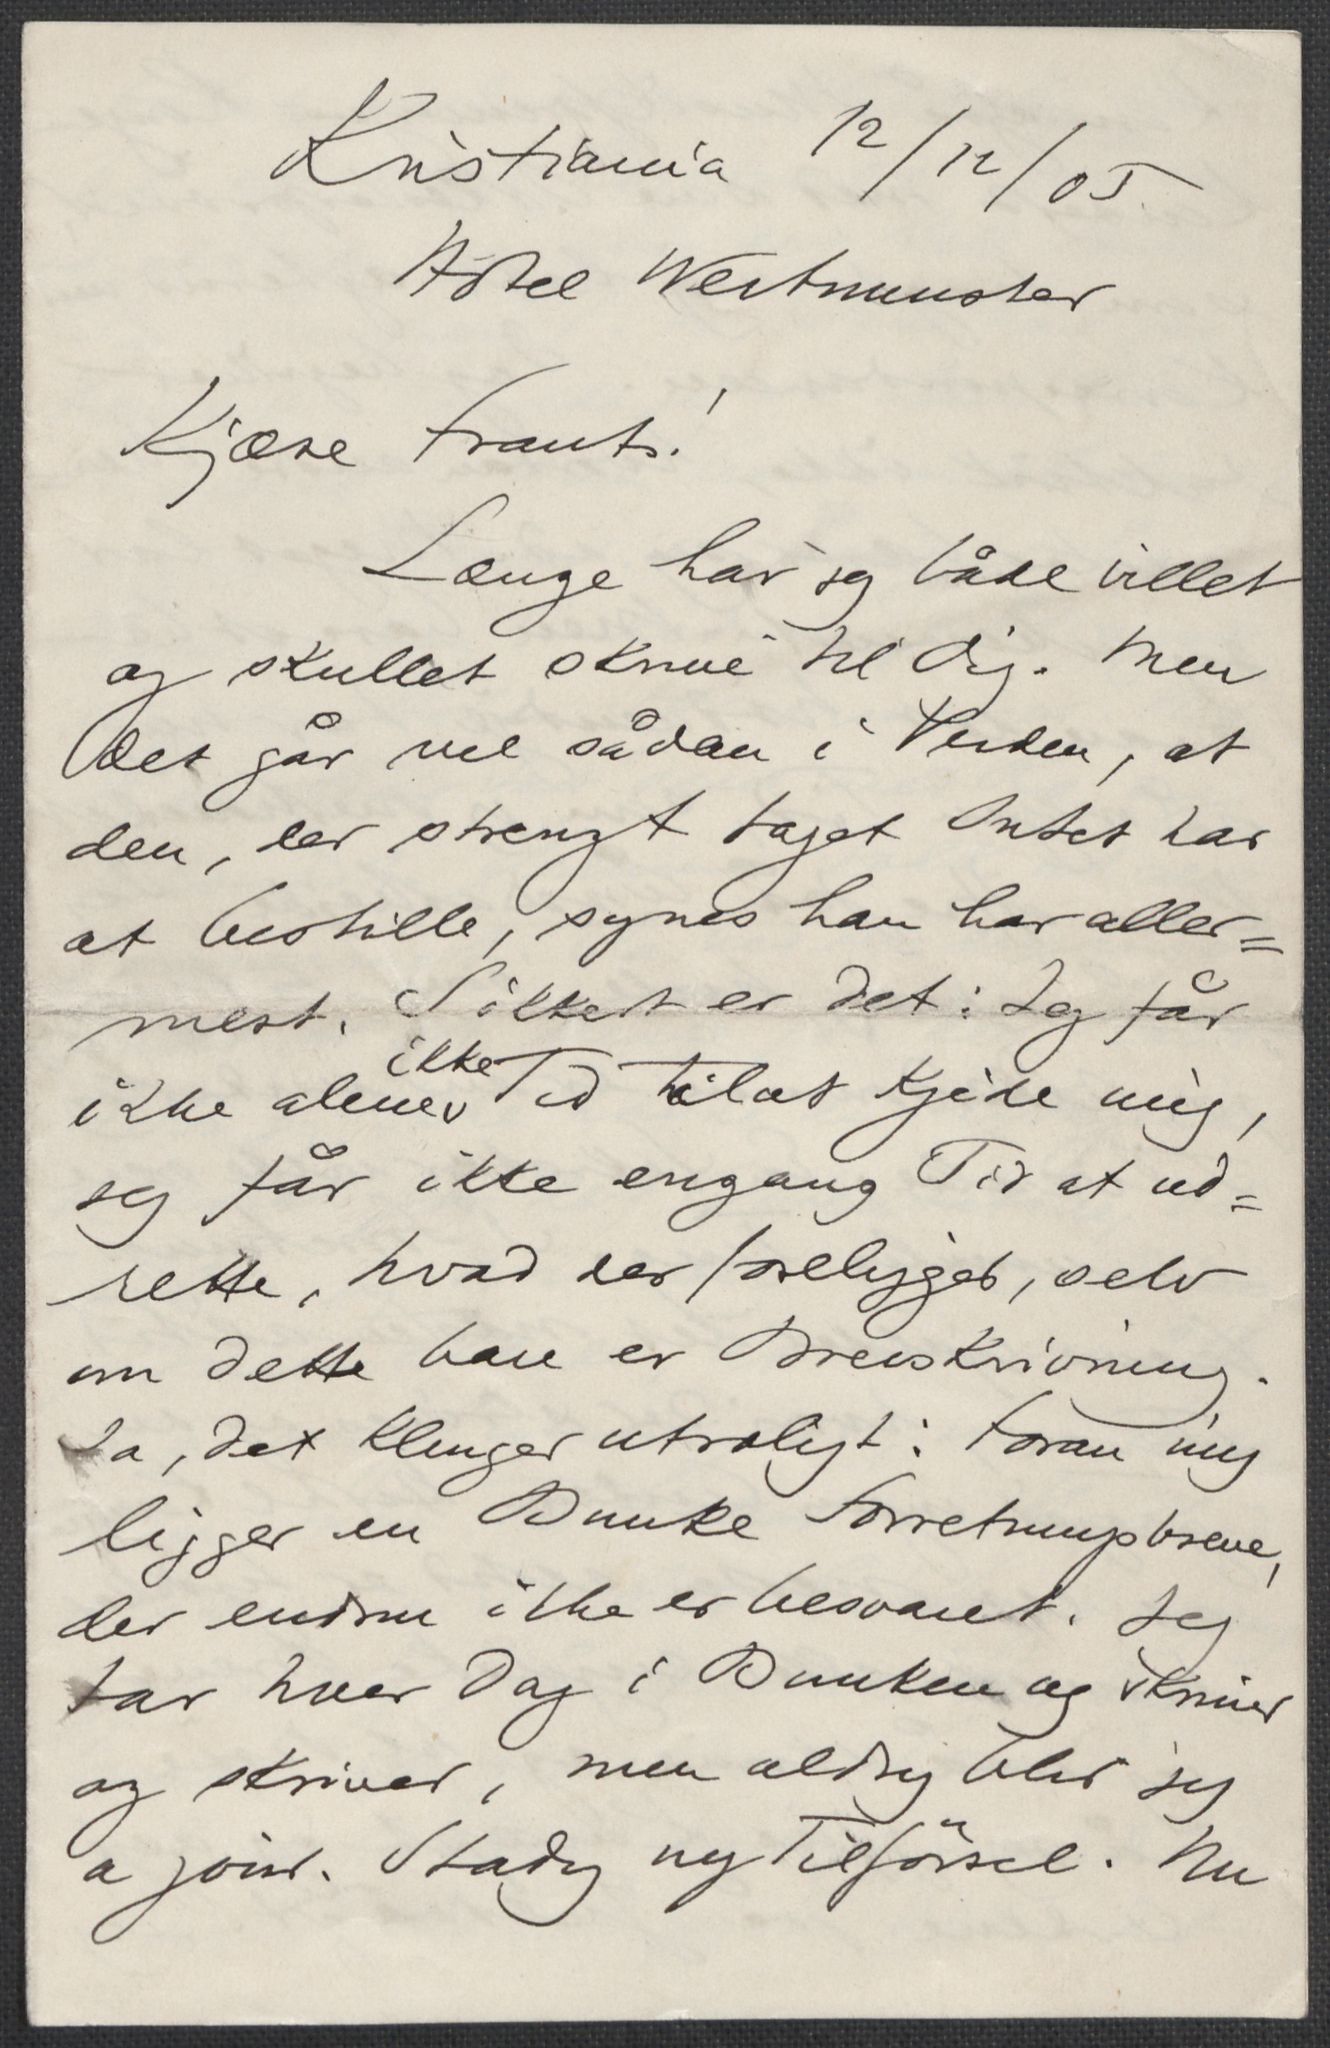 Kristiania 12/12/05.
Hôtel Westminster
Kjære Frants!
Længe har jeg både villet
og skullet skrive til Dig. Men
det går vel sådan i Verden, at
den, der strengt taget Intet har
at bestille, synes han har aller=
mest. Sikkert er det: Jeg får
ikke alene ikke Tid til at kjede mig,
jeg får ikke engang Tid at ud=
rette, hvad der foreligger, selv
om dette bare er Brevskrivning.
Ja, det klinger utroligt: Foran mig
ligger en Bunke Forretningsbreve,
der endnu ikke er besvaret. Jeg
tar hver Dag i Bunken og skriver
og skriver, men aldrig blir jeg
a jour. Stadig ny Tilförsel. Nu